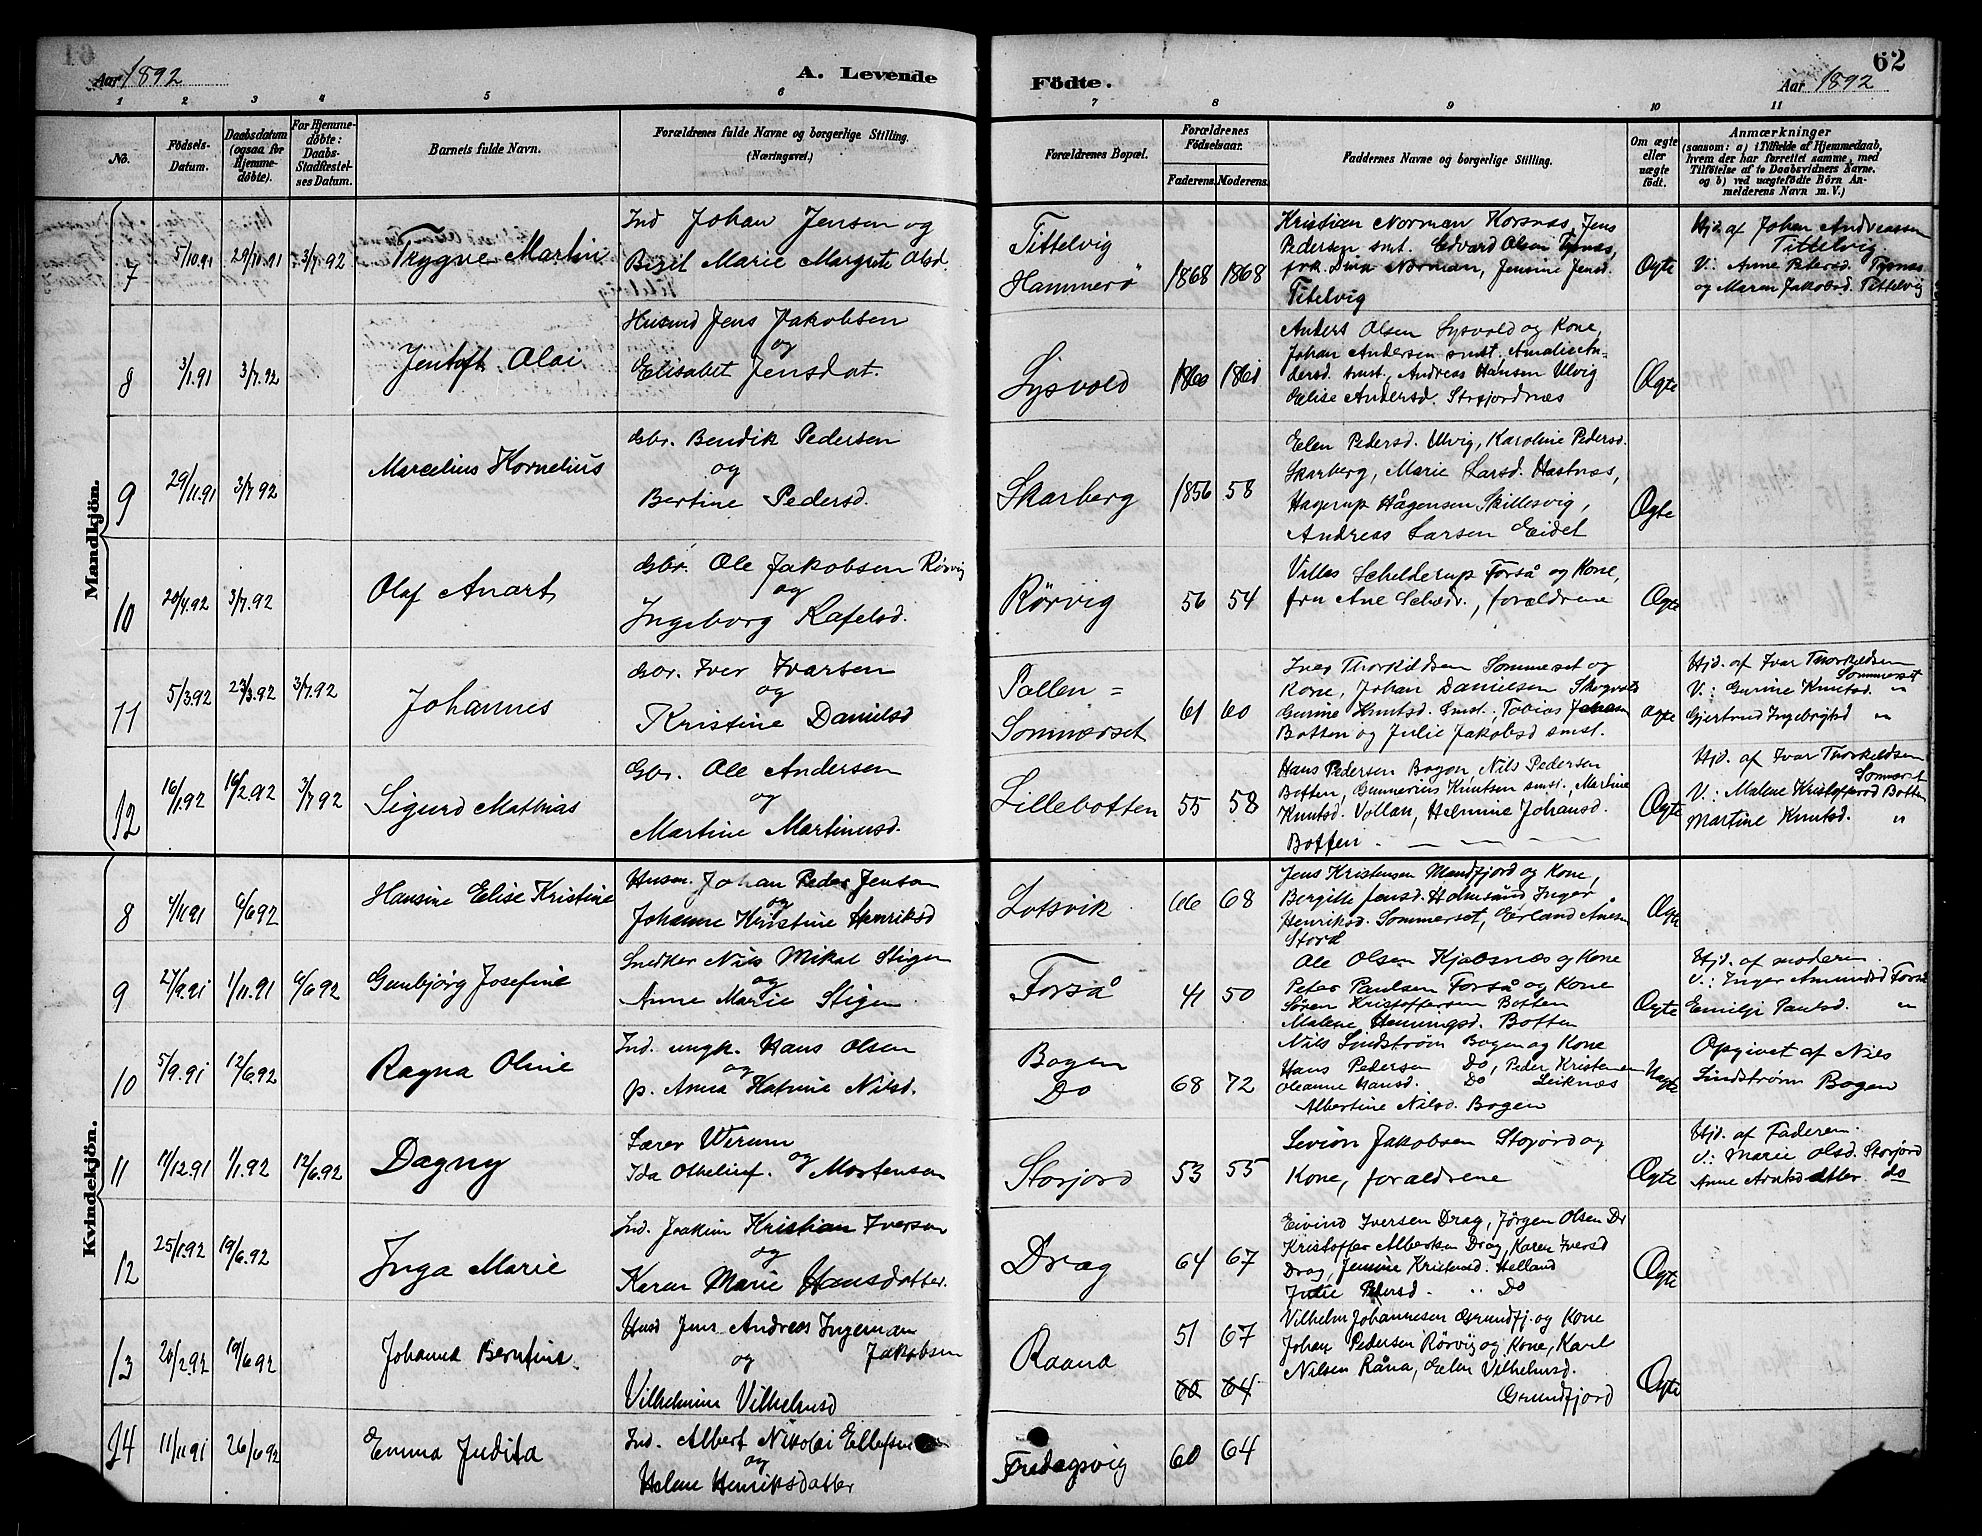 Aar 1892
A. Levende
Födte.
62
Aar 1892
1 2 3 4 5 6 7 8 9 10 11
No.
Födsels-
Datum.
Daabsdatum
(ogsaa for
Hjemme-
döbte).
For Hjemme-
döbte:
Daabs-
Stadfæstel-
ses Datum.
Barnets fulde Navn.
Forældrenes fulde Navne og borgerlige Stilling.
(Næringsvei.)
Forældrenes Bopæl.
Forældrenes
Födselsaar.
Faderens.
Moderens.
Faddernes Navne og borgerlige Stilling.
Om ægte
eller
uægte
födt.
Anmærkninger
(saasom: a) i Tilfælde af Hjemmedaab,
hvem der har forrettet samme, med
Tilföielse af to Daabsvidners Navne.
og b) ved uægtefödte Börn An-
melderens Navn m. V.)
Mandkjön.
7
5/10.91
29/10.91
3/7.92
Trygve Martin
Ind Johan Jensen og
Berit Marie Margrete Olsd.
Tittelvig
Hammerö
1868
1868
Kristian Norman Korsnæs, Jens
Pedersen smst. Edvard Olsen Tysnæs,
frk. Dina Norman, Jensine Jensd.
Titelvig
Ægte
Hjd. af Johan Andreassen
Tittelvig
V.: Anne Petersd. Tysnæs
og Maren Jakobsd. Tittelvig
8
3/1.91
3/7.92
Jentoft Olai
Husmd Jens Jakobsen
og
Elisabet Jensdat.
Lysvold
1860
1861
Anders Olsen Lysvold og Kone,
Johan Andersen smst, Amalie An-
dersd. smst, Andreas Hansen Ulvig
Elise Andersd. Storfjordnæs
Ægte
9
29/11.91
3/7 92
Marcelius Kornelius
Gbr. Bendik Pedersen
og
Bertine Pedersd.
Skarberg
1856
58
Elen Pedersd. Ulvig, Karoline Pedersd.
Skarberg, Marie Larsd. Hastnæs,
Hagerup Hågensen Skillesvig,
Andreas Larsen Eidet
Ægte
10
20/4.92
3/7.92
Olaf Anart
Gbr. Ole Jakobsen Rörvig
og
Ingeborg Rafelsd.
Rörvig
56
54
Villas Schelderup Forså og Kone,
fru Ane Scheldr., forældrene
Ægte
11
5/3.92
23/3.92
3/7.92
Johannes
Gbr. Iver Ivarsen
og
Kristine Danielsd
Pollen =
Sommerset
61
60
Ivar Thorkildsen Sommerset og
Kone, Johan Danielsen Skogvold
Gurine Knutsd. smst., Tobias Johansen
Botten og Julie Jakobsd smst.
Ægte
Hjd. af Ivar Thorkildsen
Sommerset
V.: Gurine Knutsd. "
Gjertrud Ingebrigtsd "
12
16/1.92
16/2.92
3/7 92
Sigurd Mathias
Gbr. Ole Andersen
og
Martine Martinusd.
Lillebotten
55
58
Hans Pedersen Bogen, Nils Pedersen
Botten, Gunnerius Knutsen smst., Martine
Knutsd. Vollan, Helmine Johansd.
Botten. — — —
Ægte
Hjd. af Ivar Thorkildsen
Sommerset
V.: Malene Kristoffersd Botten
Martine Knutsd. "
Kvindekjön.
8
4/11.91
6/6.92
Hansine Elise Kristine
Husm. Johan Peder Jenson
og
Johanne Kristine Henriksd
Lotsvik
66
68
Jens Kristensen Mandfjord og Kone,
Bergitte Jensd. Holmsund, Inger
Henriksd. Sommerset, Erland Anesen
Stord
Ægte
9
27/9.91
1/11.91
6/6.92
Gunbjörg Josefine
Snedker Nils Mikal Stigen
og
Anne Marie Stigen
Forså
41
50
Ole Olsen Kjöbsnæs og Kone
Peter Paulsen Forså og Kone
Sören Kristoffersen Botten
Malene Henningsd. Botten
Ægte
Hjd. af moderen.
V.: Inger Amundsd Forså
Emilje Paulsd. "
10
5/9.91
12/6.92
Ragna Oline
Ind. ungk. Hans Olsen
og
p. Anna Katrine Nilsd.
Bogen
Do
68
72
Nils Lindström Bogen og Kone
Hans Pedersen Do, Peder Kristensen
Oleanne Hansd. Do Leiknæs
Albertine Nilsd. Bogen
Uægte
Opgivet af Niels
Lindström Bogen
11
11/12.91
1/1.92
12/6.92
Dagny
Lærer Wirum
og
Ida Othelinef. Mortensen
Storjord
53
55
Levion Jakobsen Storjord og
Kone, forældrene
Ægte
Hjd. af Faderen.
V.: Marie Olsd. Storjord
Anne Arntsdatter do
12
25/1.92
19/6.92
Inga Marie
Ind. Joakim Kristian Iversen
og
Karen Marie Hansdatter.
Drag
64
67
Eivind Iversen Drag, Jörgen Olsen Dr
Kristoffer Albertsen Drag, Karen Iversd
Drag, Jensine Kristensd. Helland
Julie Pedersd. " Do
Ægte
13
20/2.92
19/6.92
Johanna Berntine.
Husd Jens Andreas Ingeman
Jakobsen
og
Vilhelmine Vilhelmsd
Raana
51
67
60
64
Vilhelm Johannesen Grundfj. og Kone
Johan Pedersen Rörvig og Kone, Karl
Nilsen Råna, Elen Vilhelmsd.
Grundfjord
Ægte
14
11/11.91
26/6.92
Emma Judita
Ind. Albert Nikolai Ellefsen
og
Helene Henriksdatter
Fredagsvig
60
64